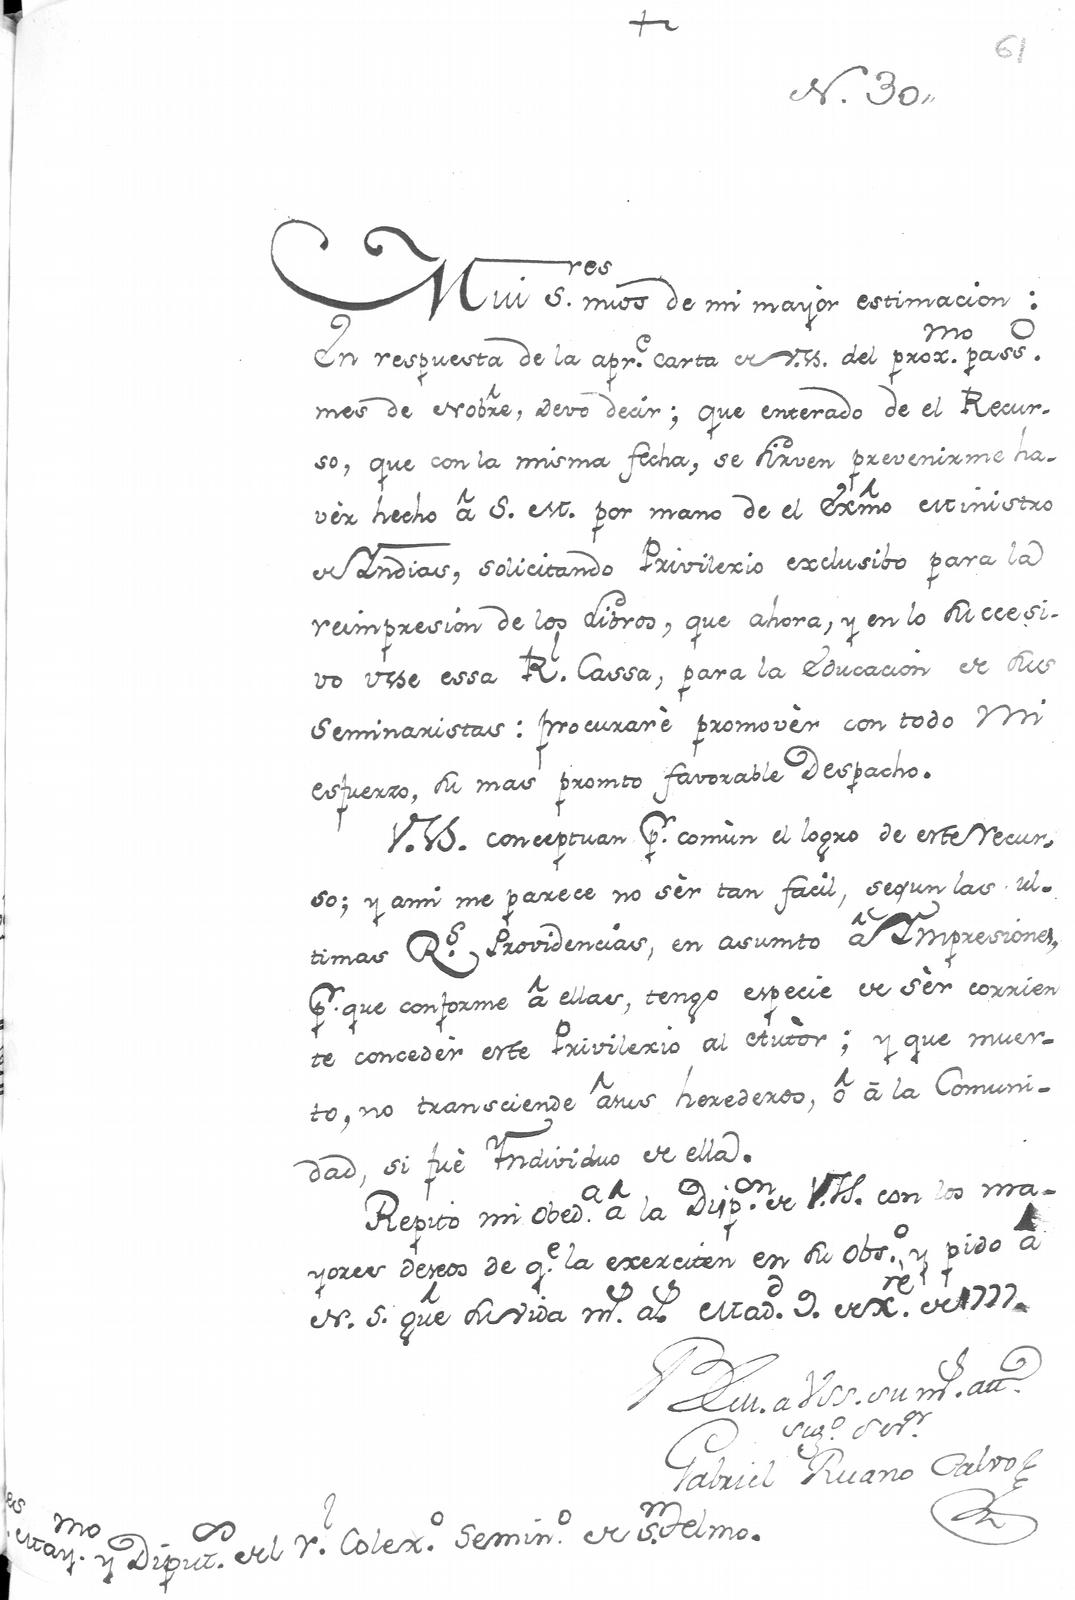 61
N. 30,,
Mui S.res mios de mi mayor estimacion:
En respuesta de la apr.e carta de V.SS. del prox.mo pass.o
mes de Nobre, devo decir; que enterado de el Recur-
so, que con la misma fecha, se sirven prevenirme ha-
vèr hecho â S. M. por mano de el Exmo Ministro
de Yndias, solicitando Privilexio exclusibo para la
reimpresión de los Libros, que ahora, y en lo succesi-
vo usse essa R.l Cassa, para la Educación de sus
Seminaristas: procurarè promovèr con todo Mi
esfuerzo, su mas promto favorable Despacho.
V.SS. conceptuan p.r comùn el logro de este recur-
so; y ami me parece no sèr tan facil, segun las ul-
timas R.s Providencias, en asumto â Ympresiones,
p.r que conforme â ellas, tengo especie de sèr corrien
te concedèr este Privilexio al Autòr; y que muer-
to, no transciende âsus herederos, ô â la Comuni-
dad, si fuè Yndividuo de ella.
Repito mi obed.a â la Disp.on de V.SS. con los ma-
yores deseos de q.e la exerciten en su obs.o, y pido â
N. S. que su vida m.s a.s Mad.d 9. de X.re de 1777.
BLM. a VSS. su m.s att.o
seg.o ser.or
Gabriel Ruano Calvo
May.mo y Diput.os del R.l Colex.o Semin.o de S.n Telmo.